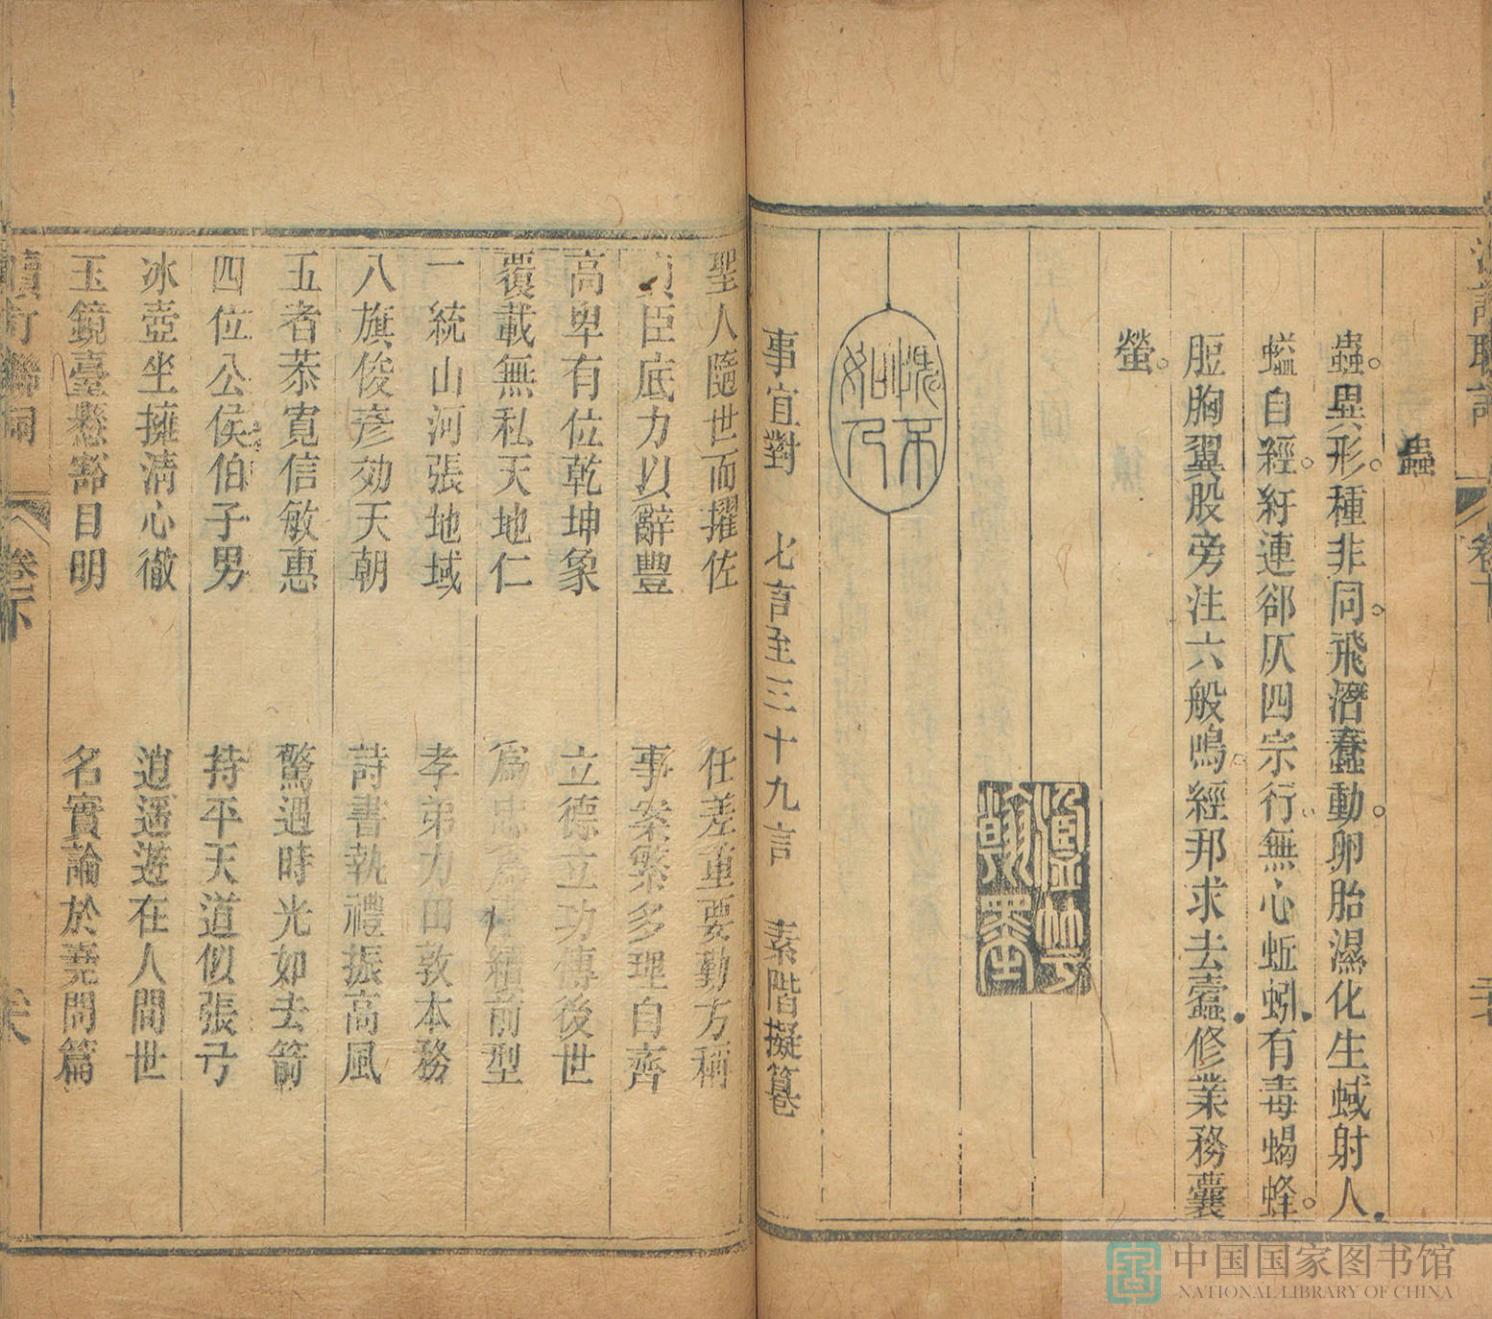 蟲
蟲異形種非同飛潛蠢動卵胎濕化生蜮射人
蜢自經紆連郤仄四宗行無心蚯蚓有毒蝎蜂
脰胸翼股旁注六般鳴經邦求去蠹修業務囊
螢
事宜對 七言至三十九言 素階擬篹
聖人隨世而擢佐 任差重要勤方稱
臣底力以辭豐 事案繁多理自齊
高卑有位乾坤象 立德立功傳後世
覆載無私天地仁 爲忠爲 績前型
一統山河張地域 孝弟力田敦本務
八旗俊彥効天朝 詩書執禮振高風
五者恭寬信敏惠 驚過時光如去箭
四位公侯伯子男 持平天道似張弓
冰壺坐擁淸心徹 逍遥遊在人間世
玉鏡臺懸豁目明 名實論於堯問篇
中国国家图书馆
NATIONAL LIBRARY OF CHINA